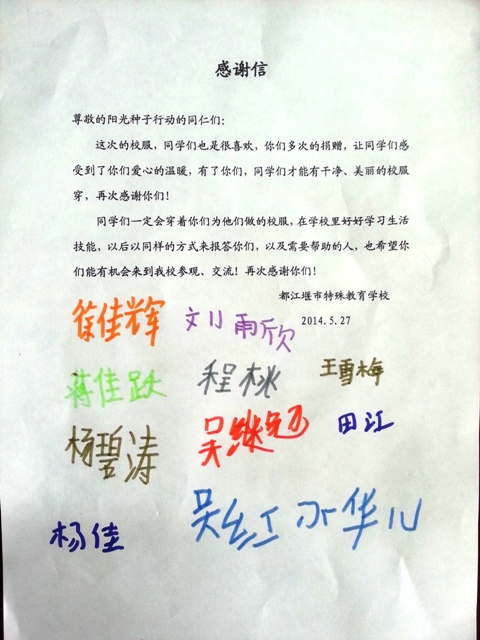 感谢信
尊敬的阳光种子行动的同仁们：
这次的校服，同学们也是很喜欢，你们多次的捐赠，让同学们感
受到了你们爱心的温暖，有了你们，同学们才能有干净、美丽的校服
穿，再次感谢你们！
同学们一定会穿着你们为他们做的校服，在学校里好好学习生活
技能，以后以同样的方式来报答你们，以及需要帮助的人，也希望你
们能有机会来到我校参观、交流！再次感谢你们！
都江堰市特殊教育学校
2014.5.27
徐佳辉 刘雨欣
蒋佳跃 程桃 王雪梅
杨碧涛 吴继冠 田江
杨佳 吴红